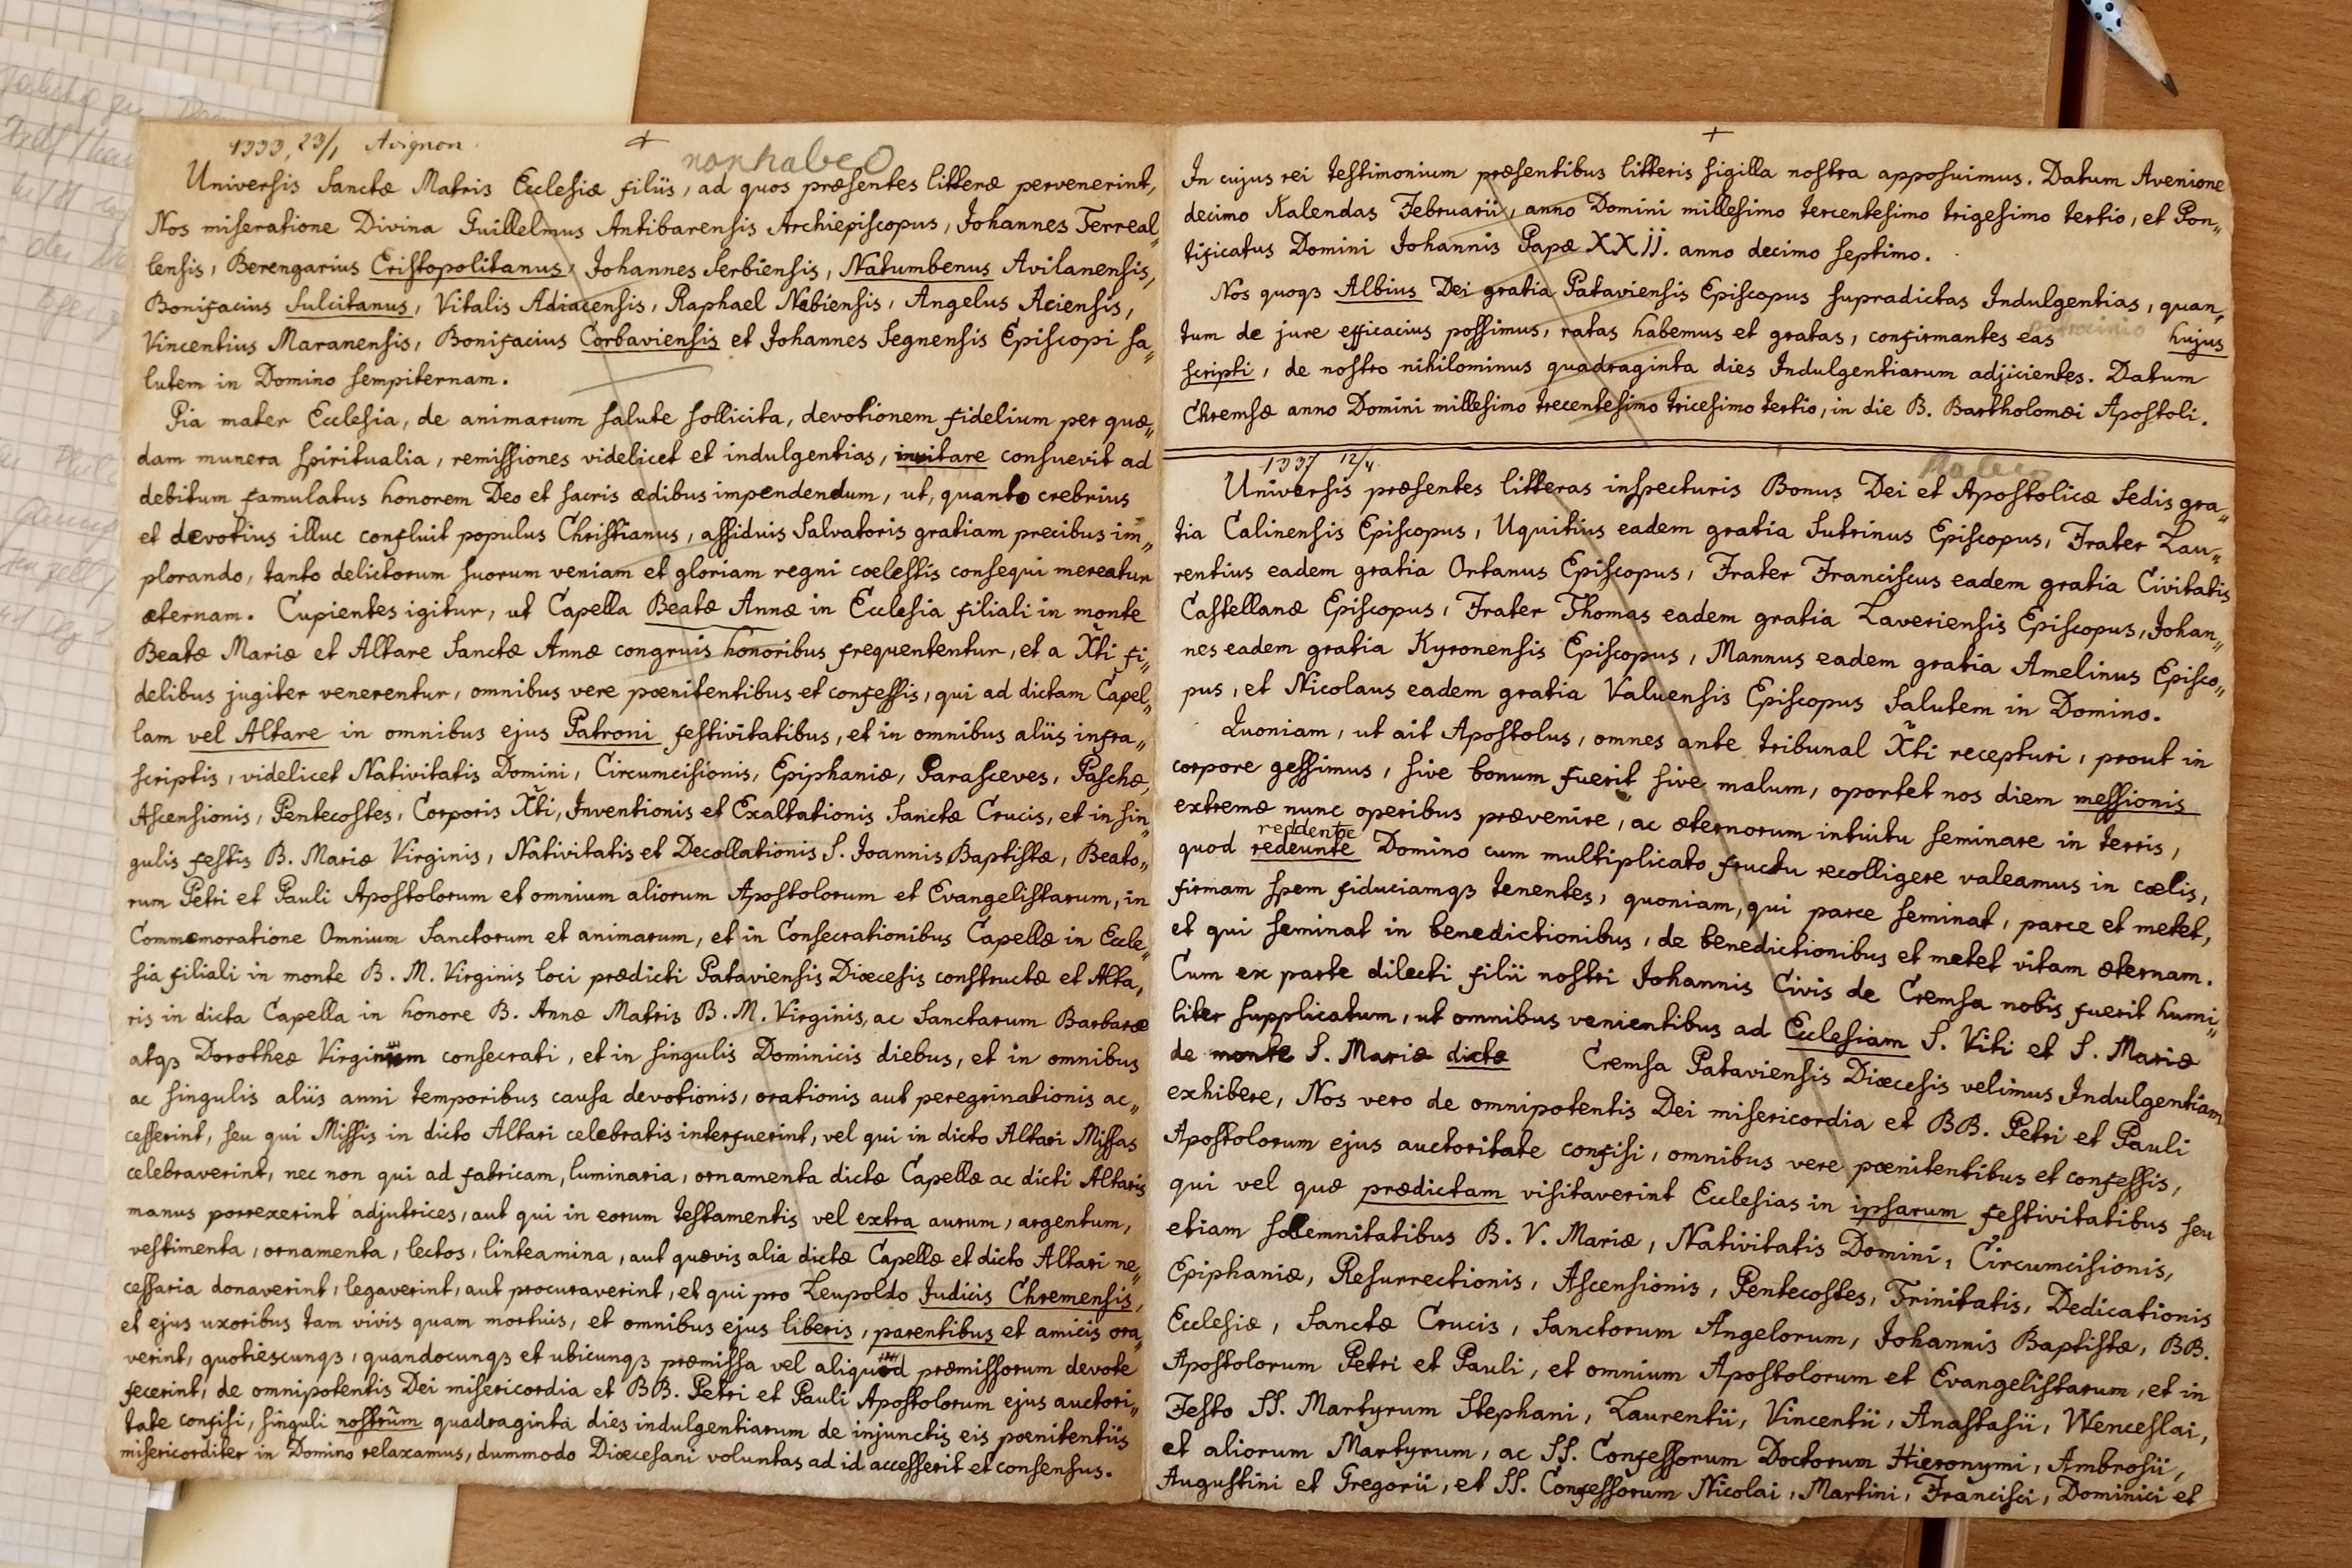 1333, 23/1 Avignon
non habeo
Universis Sanctæ Matris Ecclesiæ filiis, ad quos præsentes litteræ pervenerint,
Nos miseratione Divina Guillelmus Antibarensis Archiepiscopus, Johannes Terreal„
lensis, Berengarius Cristopolitanus, Johannes Serbiensis, Natumbenus Avilanensis,
Bonifacius Sulcitanus, Vitalis Adiacensis, Raphael Nebiensis, Angelus Aciensis,
Vincentius Maranensis, Bonifacius Corbaviensis et Johannes Segnensis Episcopi sa„
lutem in Domino sempiternam.
Pia mater Ecclesia, de animarum salute sollicita, devotionem fidelium per quæ„
dam munera spiritualia, remissiones videlicet et indulgentias, invitare consuevit ad
debitum famulatus honorem Deo et sacris ædibus impendendum, ut, quanto crebrius
et devotius illuc confluit populus Christianus, assiduis Salvatoris gratiam precibus im„
plorando, tanto delictorum suorum veniam et gloriam regni coelestis consequi mereatur
æternam. Cupientes igitur, ut Capella Beatæ Annæ in Ecclesia filiali in monte
Beatæ Mariæ et Altare Sanctæ Annæ congruis honoribus frequententur, et a Xti fi„
delibus jugiter venerentur, omnibus vere pœnitentibus et confessis, qui ad dictam Capel„
lam vel Altare in omnibus ejus Patroni festivitatibus, et in omnibus aliis infra„
scriptis, videlicet Nativitatis Domini, Circumcisionis, Epiphaniæ, Parasceves, Paschæ,
Ascensionis, Pentecostes, Corporis Xti, Inventionis et Exaltationis Sanctæ Crucis, et in sin„
gulis festis B. Mariæ Virginis, Nativitatis et Decollationis S. Joannis Baptistæ, Beato„
rum Petri et Pauli Apostolorum et omnium aliorum Apostolorum et Evangelistarum, in
Commemoratione Omnium Sanctorum et animarum, et in Consecrationibus Capellæ in Eccle„
sia filiali in monte B. M. Virginis loci prædicti Pataviensis Diœcesis constructæ et Alta„
ris in dicta Capella in honore B. Annæ Matris B. M. Virginis, ac Sanctarum Barbaræ
atqꝫ Dorotheæ Virginum consecrati, et in singulis Dominicis diebus, et in omnibus
ac singulis aliis anni temporibus causa devotionis, orationis aut peregrinationis ac„
cesserint, seu qui Missis in dicto Altari celebratis interfuerint, vel qui in dicto Altari Missas
celebraverint, nec non qui ad fabricam, luminaria, ornamenta dictæ Capellæ ac dicti Altaris
manus porrexerint adjutrices, aut qui in eorum testamentis vel extra aurum, argentum,
vestimenta, ornamenta, lectos, linteamina, aut quævis alia dictæ Capellæ et dicto Altari ne„
cessaria donaverint, legaverint, aut procuraverint, et qui pro Leupoldo Judicis Chremensis,
et ejus uxoribus tam vivis quam mortuis, et omnibus ejus liberis, parentibus et amicis ora„
verint, quotiescunqꝫ, quandocunqꝫ et ubicunqꝫ præmissa vel aliquod præmissorum devote
fecerint, de omnipotentis Dei misericordia et BB. Petri et Pauli Apostolorum ejus auctori„
tate confisi, singuli nostrûm quadraginta dies indulgentiarum de injunctis eis pœnitentiis
misericorditer in Domino relaxamus, dummodo Diœcesani voluntas ad id accesserit et consensus.
In cujus rei testimonium præsentibus litteris sigilla nostra apposuimus. Datum Avenione
decimo Kalendas Februarii, anno Domini millesimo tercentesimo trigesimo tertio, et Pon„
tificatus Domini Johannis Papæ XXII. anno decimo septimo.
Nos quoqꝫ Albius Dei gratia Pataviensis Episcopus supradictas Indulgentias, quan„
tum de jure efficacius possimus, ratas habemus et gratas, confirmantes eas patrocinio hujus
scripti, de nostro nihilominus quadraginta dies Indulgentiarum adjicientes. Datum
Chremsæ anno Domini millesimo trecentesimo tricesimo tertio, in die B. Bartholomæi Apostoli.
1337 12/4
habeo
Universis præsentes litteras inspecturis Bonus Dei et Apostolicæ Sedis gra„
tia Calinensis Episcopus, Uquitius eadem gratia Sutrinus Episcopus, Frater Lau„
rentius eadem gratia Ortanus Episcopus, Frater Franciscus eadem gratia Civitatis
Castellanæ Episcopus, Frater Thomas eadem gratia Laveriensis Episcopus, Johan„
nes eadem gratia Kyronensis Episcopus, Mannus eadem gratia Amelinus Episco„
pus, et Nicolaus eadem gratia Valuensis Episcopus Salutem in Domino.
Quoniam, ut ait Apostolus, omnes ante tribunal Xti recepturi, prout in
corpore gessimus, sive bonum fuerit sive malum, oportet nos diem messionis
extremæ nunc operibus prævenire, ac æternorum intuitu seminare in terris,
reddente
quod redeunte Domino cum multiplicato fructu recolligere valeamus in cœlis,
firmam spem fiduciamqꝫ tenentes, quoniam, qui parce seminat, parce et metet,
et qui seminat in benedictionibus, de benedictionibus et metet vitam æternam.
Cum ex parte dilecti filii nostri Johannis Civis de Cremsa nobis fuerit humi„
liter supplicatum, ut omnibus venientibus ad Ecclesiam S. Viti et S. Mariæ
de monte S. Mariæ dictæ Cremsa Pataviensis Diœcesis velimus Indulgentiam
exhibere, Nos vero de omnipotentis Dei misericordia et BB. Petri et Pauli
Apostolorum ejus auctoritate confisi, omnibus vere pœnitentibus et confessis,
qui vel quæ prædictam visitaverint Ecclesias in ipsarum festivitatibus seu
etiam sollemnitatibus B. V. Mariæ, Nativitatis Domini, Circumcisionis,
Epiphaniæ, Resurrectionis, Ascensionis, Pentecostes, Trinitatis, Dedicationis
Ecclesiæ, Sanctæ Crucis, Sanctorum Angelorum, Johannis Baptistæ, BB.
Apostolorum Petri et Pauli, et omnium Apostolorum et Evangelistarum, et in
Festo SS. Martyrum Stephani, Laurentii, Vincentii, Anastasii, Wenceslai,
et aliorum Martyrum, ac SS. Confessorum Doctorum Hieronymi, Ambrosii,
Augustini et Gregorii, et SS. Confessorum Nicolai, Martini, Francisci, Dominici et